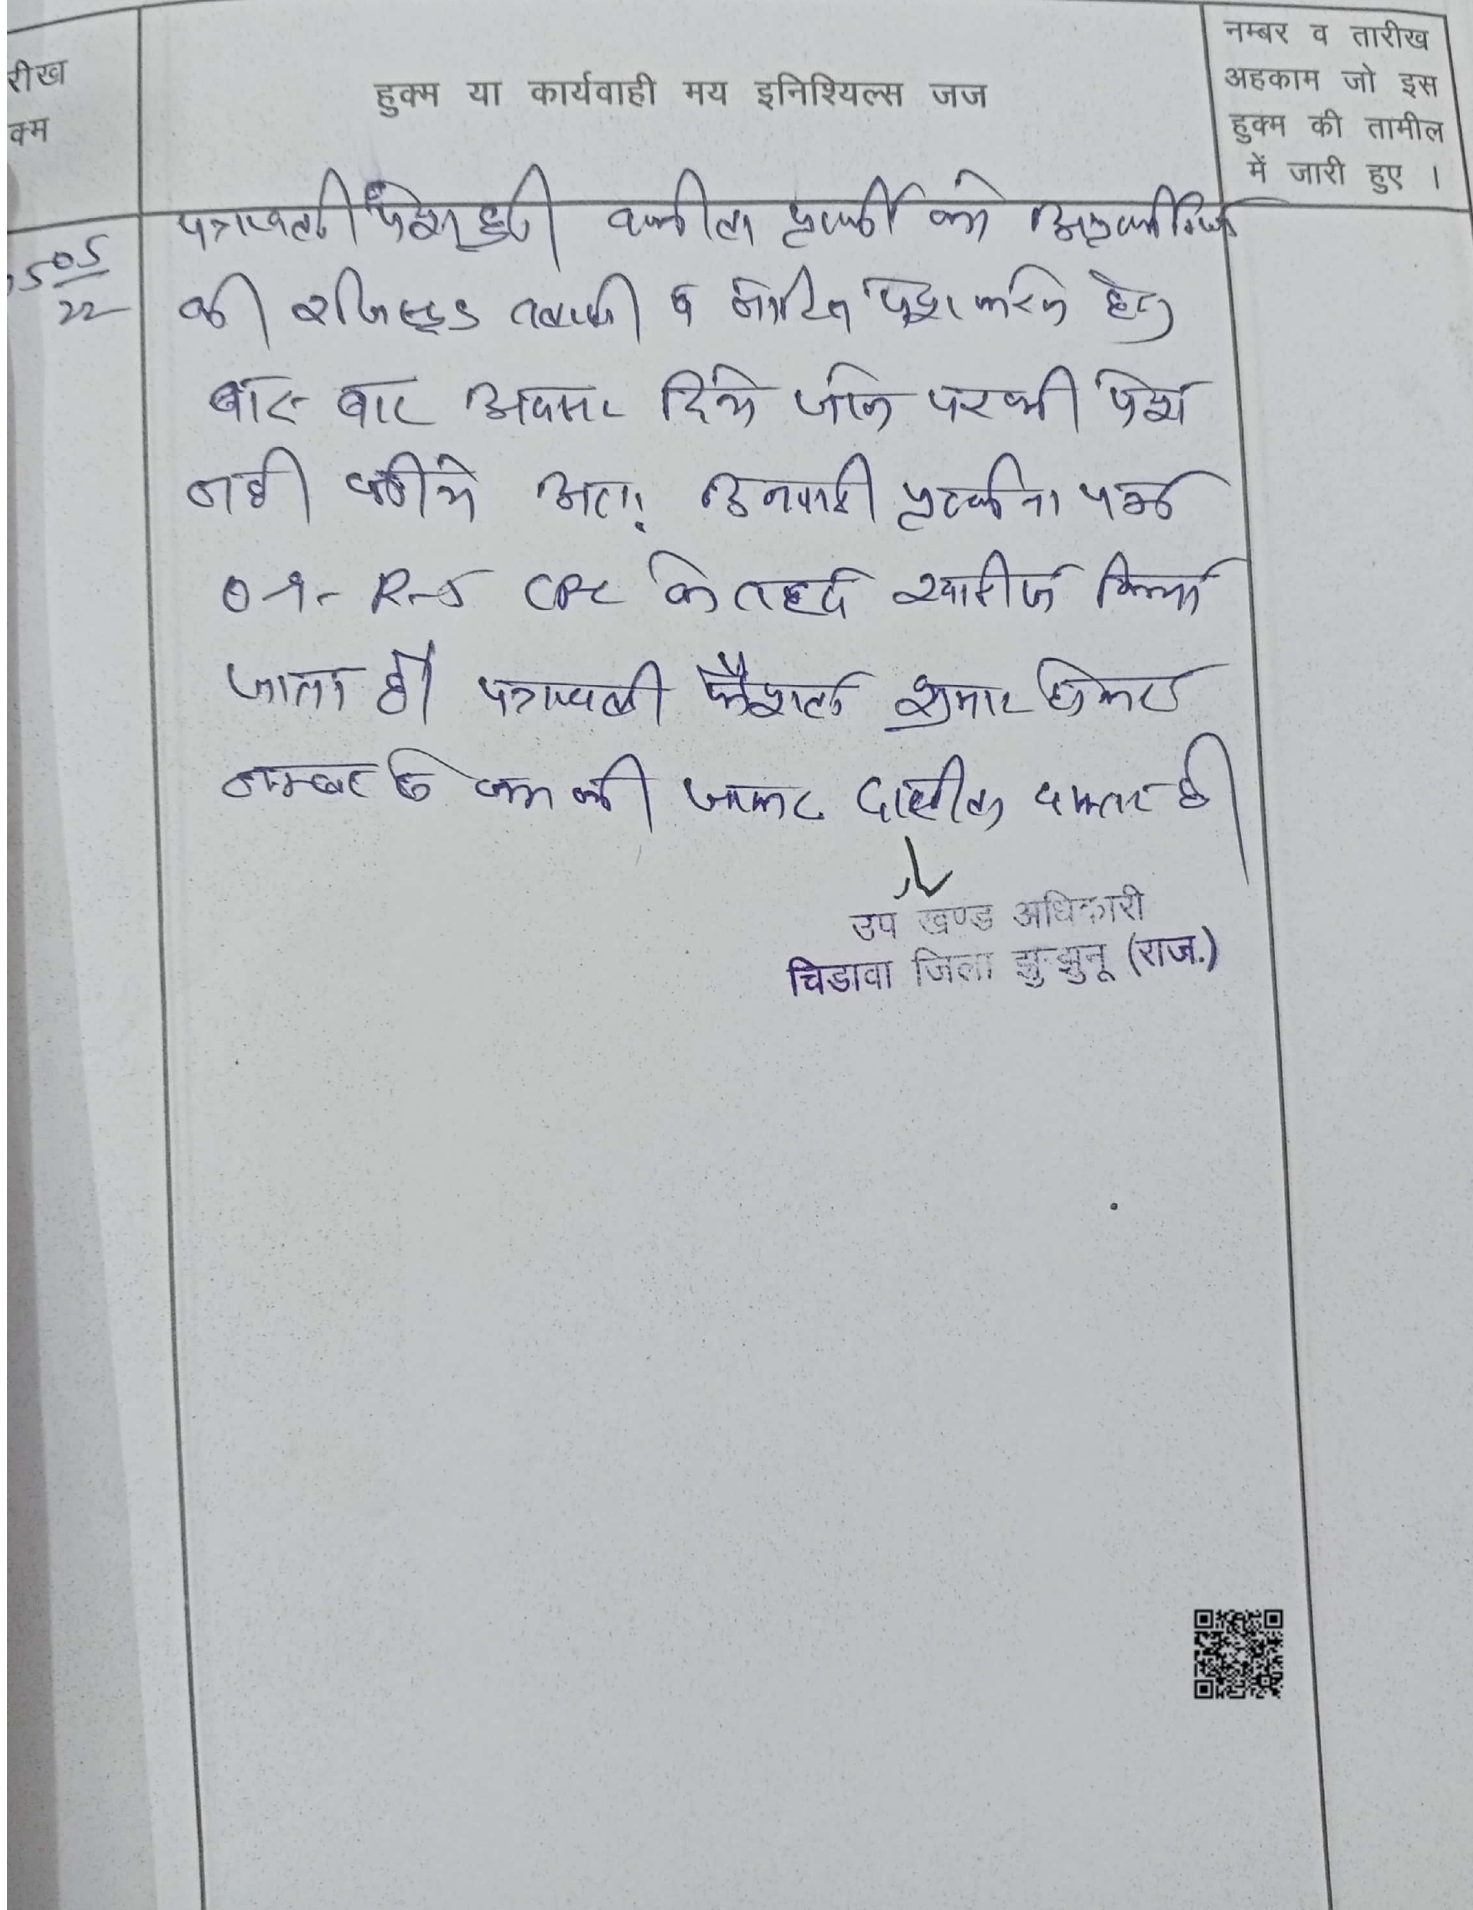 रीख
क्म
हुक्म या कार्यवाही मय इनिश्यिल्स जज
नम्बर व तारीख
अहकाम जो इस
हुक्म की तामील
में जारी हुए ।
05
22
पत्रावली पेश हुई वकील प्रार्थी को
की रजिस्ट्रड तलबी व नोटिस पेश करने हेतु
बार बार अवसर दिये जाने पर भी पेश
नही किये अतः प्रार्थना पत्र
0 9- R-5 CPC के तहद खारीज किया
जाता है। पत्रावली फैशल शुमार होकर
नम्बर से कम की जाकर दाखील दफ्तर हो।
उप खण्ड अधिकारी
चिडावा जिला झुन्झुनू (राज.)